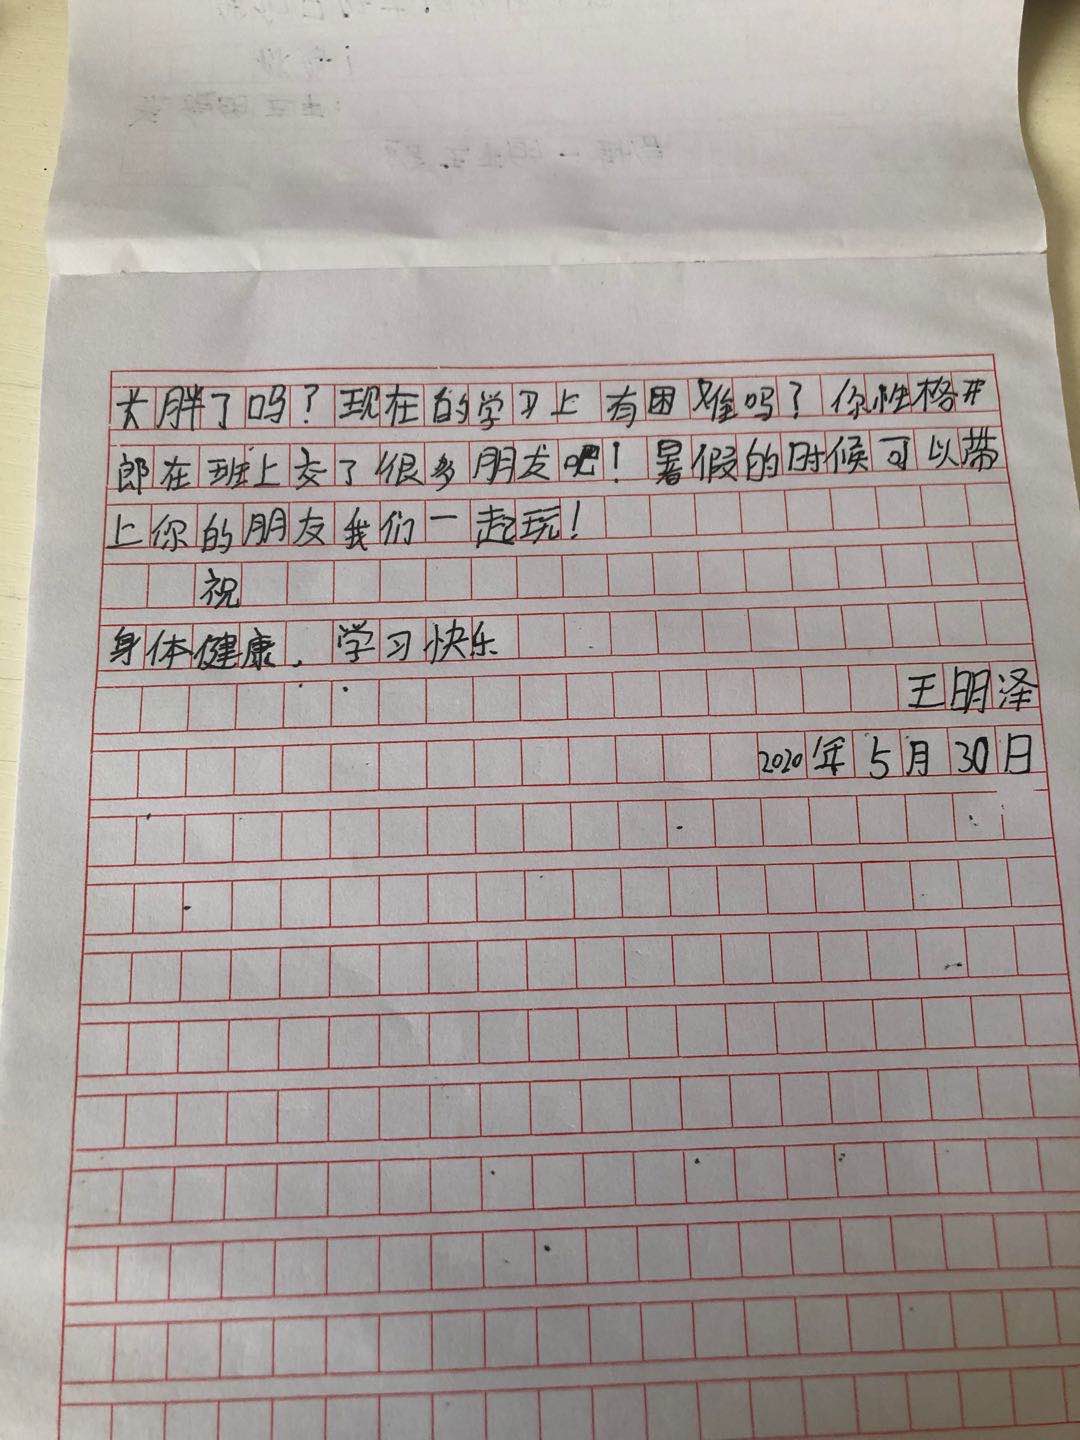 长胖了吗？现在的学习上有困难吗？你性格开
郎在班上交了很多朋友吧！暑假的时候可以带
上你的朋友我们一起玩！
祝
身体健康．学习快乐
王明泽
2020年5月30日